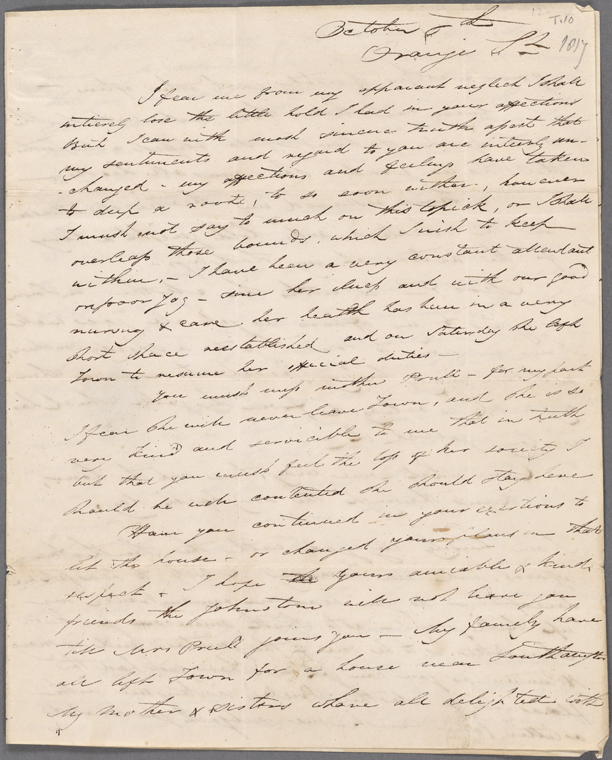 October 5th
T.10
Orange St 1817
I fear me from my apparant neglect I shall
intirely lose the little hold I had in your affections
But I can with most sincere truth assert that
my sentiments and regard to you are intirely un-
-changed - my affections and feelings have taken
to deep a roote, to so soon wither, however
I must not say to much on this topick, or I shall
overleap those bounds, which I wish to keep
within. - I have been a very constant attendant
on poor Jog - since her and with our good
nursing & care her health has been in a very
short space reestablished and on Saturday she left
Town to resume her special duties -
You must miss mother Prull - for my part
I fear she will never leave Town, and she is so
very kind and servicible to me that in truth
but that you must feel the loss of her society I
should be well contented she should stay here
Have you continued in your intentions to
let the house - or changed your plans in that
respect & I hope the Yours amicable & kind
friends the Johnstone will not leave you
till Mrs Prull joins you - My family have
all left Town for a house near Southampton
My Mother & Sisters whare all delighted with